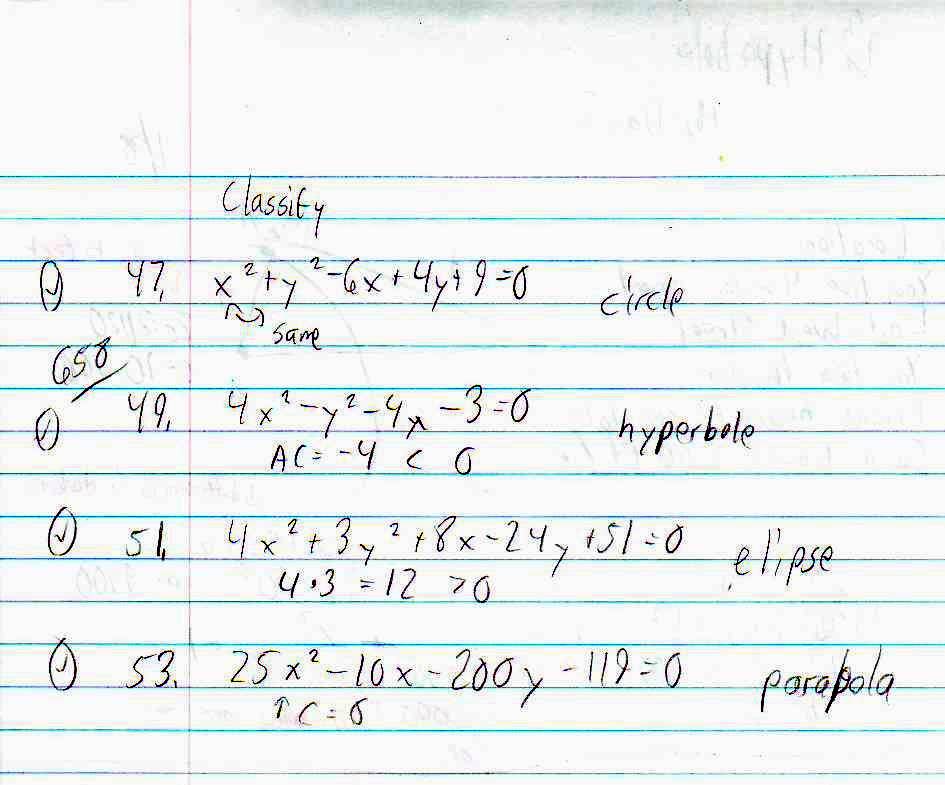 Classify
47. x² + y² - 6x + 4y + 9 = 0 circle
same
658
49. 4x² - y² - 4x - 3 = 0 hyperbole
AC = -4 < 0
51. 4x² + 3y² + 8x - 24y + 51 = 0 elipse
4·3 = 12 > 0
53. 25x² - 10x - 200y - 119 = 0 parabola
↑ C = 0